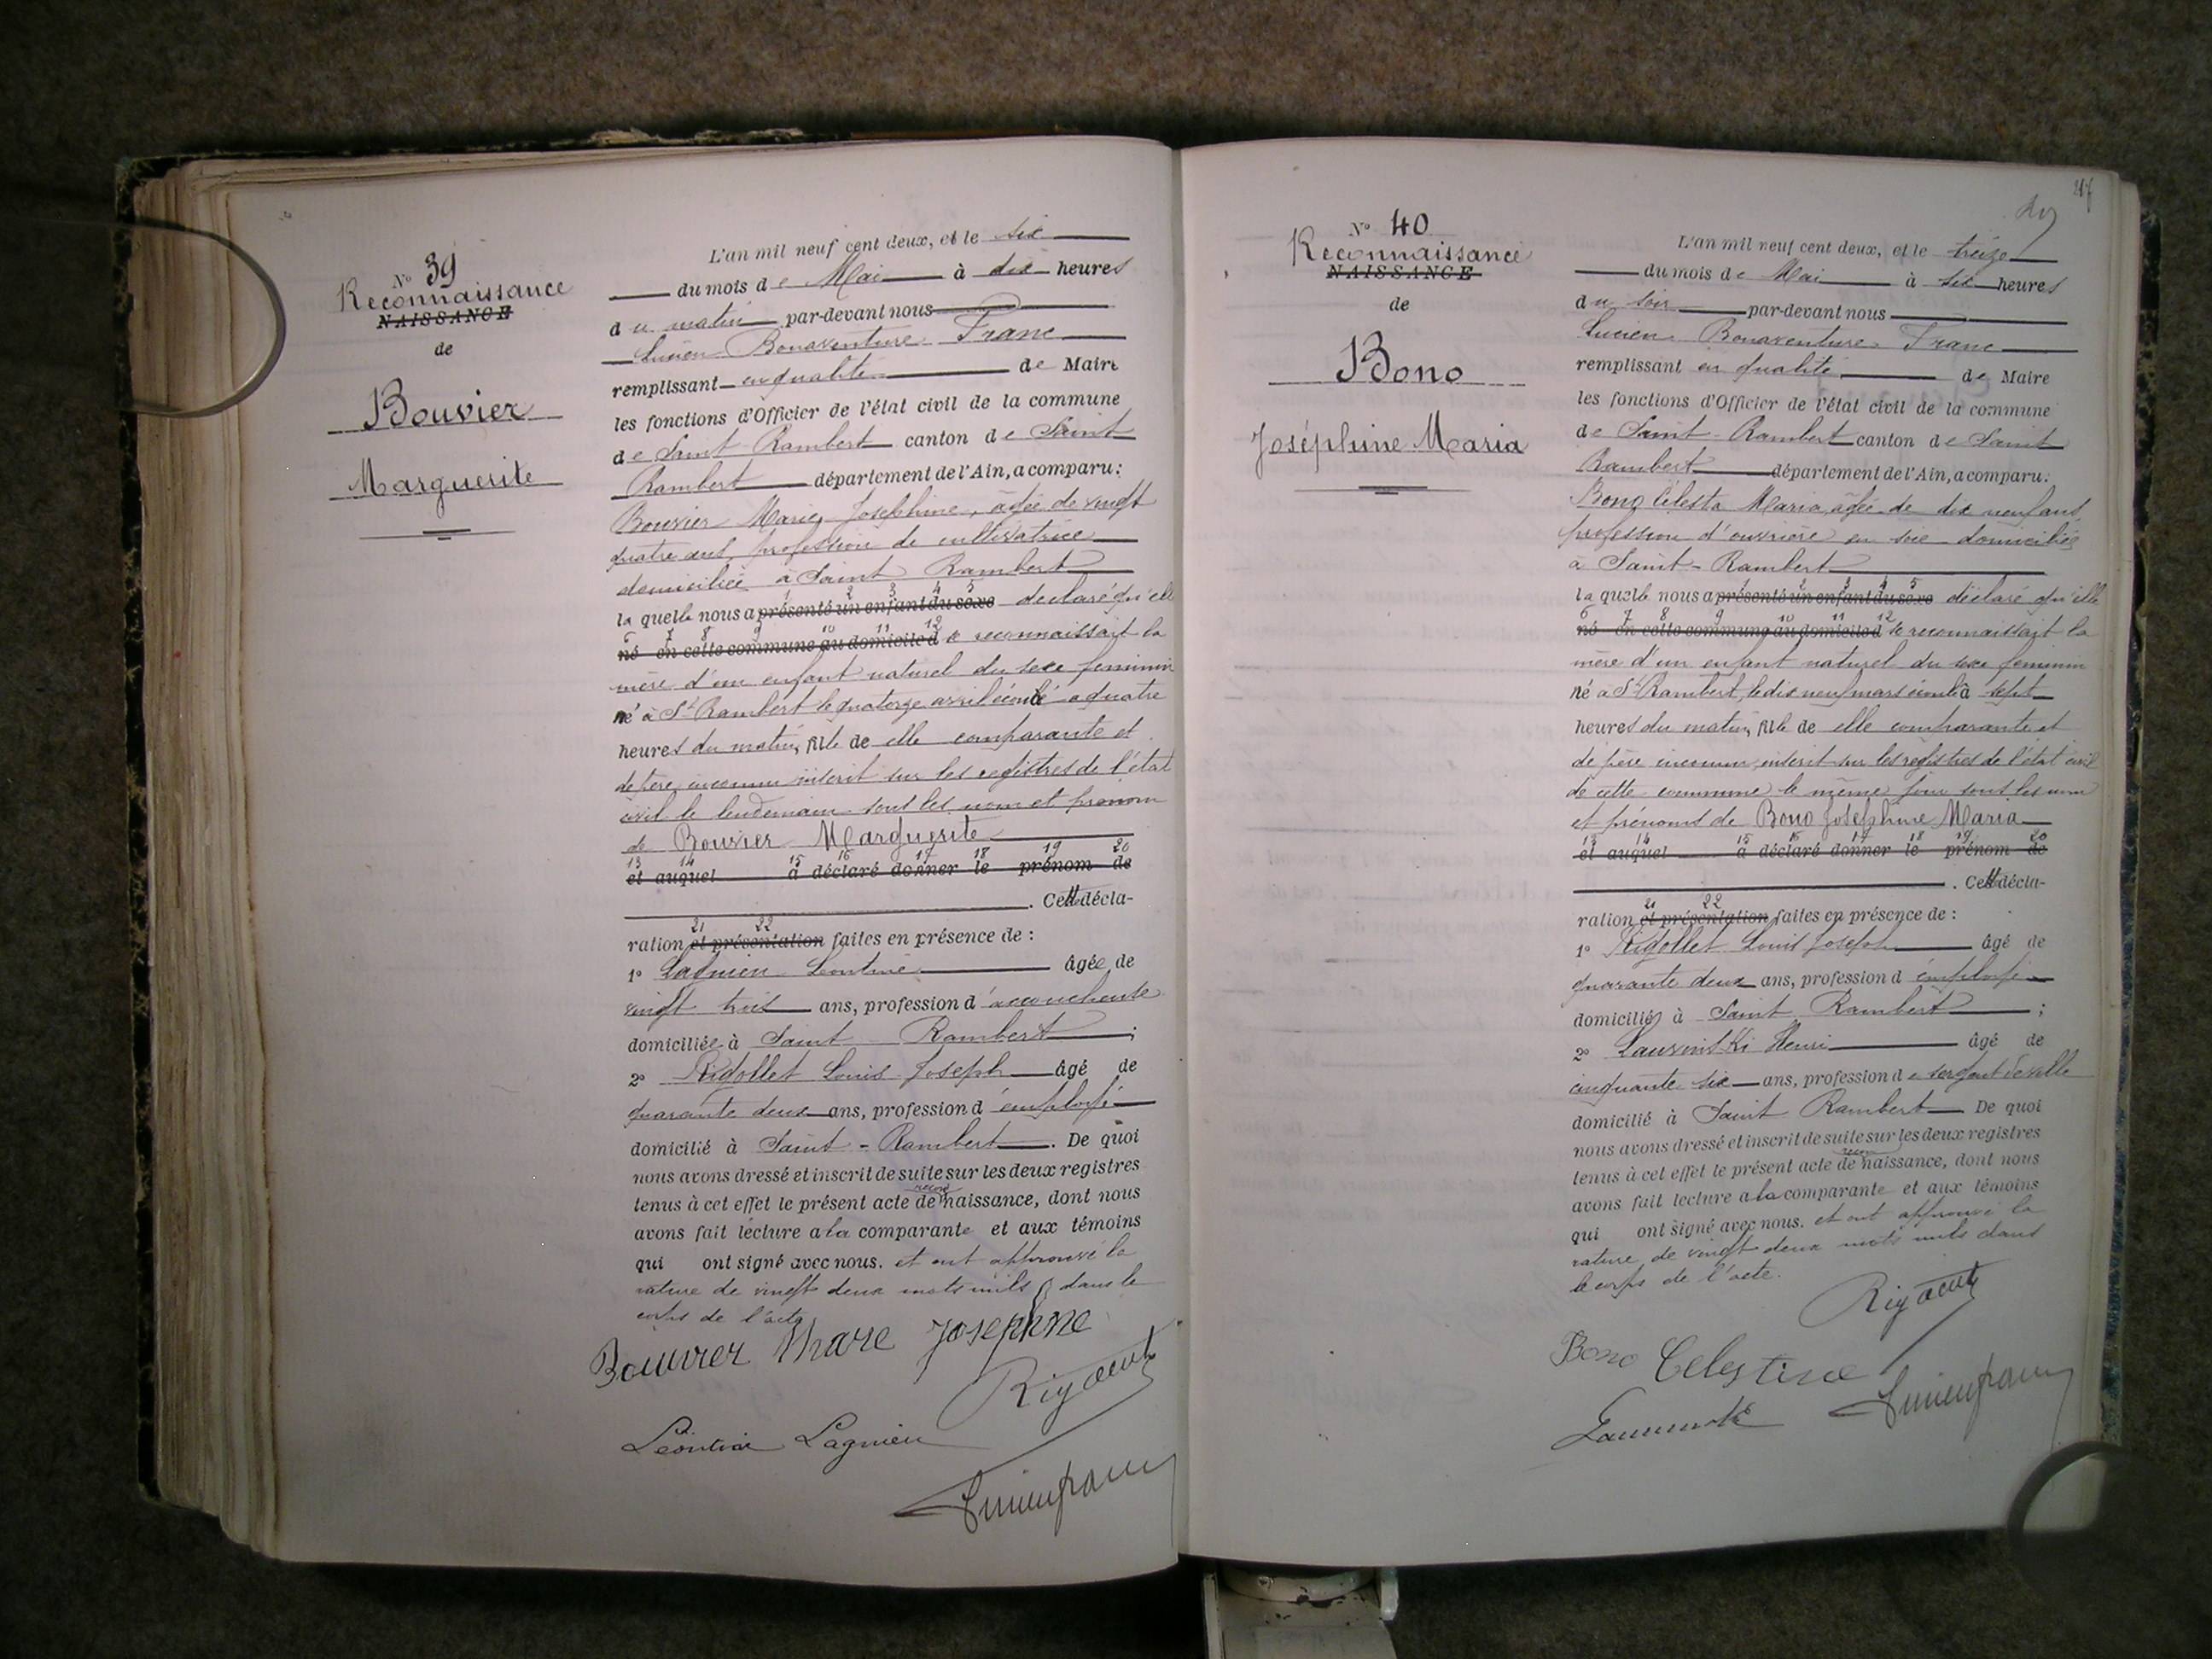 N° 39
Reconnaissance
NAISSANCE
de
Bouvier
Marguerite
L'an mil neuf cent deux, et le six
du mois de Mai à dix heures
du matin par-devant nous
Lucien Bonaventure Franc
remplissant en qualité de Maire
les fonctions d'Officier de l'état civil de la commune
de Saint Rambert canton de Saint
Rambert département de l'Ain, a comparu:
Bouvier Marie Joséphine, âgée de vingt
quatre ans, profession de cultivatrice
domiciliée à Saint Rambert
1 2 3 4 5
la quelle nous a présenté un enfant du sexe déclaré qu'elle
6 7 8 9 10 11 12
né en cette commune au domicile d se reconnaissait la
mère d'un enfant naturel du sexe féminin
né à St Rambert le quatorze avril écoulé à quatre
heures du matin, fille de elle comparante et
de père inconnu inscrit sur les registres de l'état
civil le lendemain sous les nom et prénom
de Bouvier Marguerite
13 14 15 16 17 18 19 20
et auquel a déclaré donner le prénom de
. Cette décla-
21 22
ration et présentation faites en présence de :
1° Lagnieu Léontine âgée de
vingt trois ans, profession d'accoucheuse
domiciliée à Saint Rambert ;
2° Rigollet Louis Joseph âgé de
quarante deux ans, profession d'employé
domicilié à Saint-Rambert. De quoi
nous avons dressé et inscrit de suite sur les deux registres
recon
tenus à cet effet le présent acte de naissance, dont nous
avons fait lecture à la comparante et aux témoins
qui ont signé avec nous. et ont approuvé la
rature de vingt deux mots nuls dans le
corps de l'acte
Bouvier Marie Josephine
Léontine Lagnieu
N° 40
Reconnaissance
NAISSANCE
de
Bono
Joséphine Maria
L'an mil neuf cent deux, et le treize
du mois de Mai à six heures
du soir par-devant nous
Lucien Bonaventure Franc
remplissant en qualité de Maire
les fonctions d'Officier de l'état civil de la commune
de Saint-Rambert canton de Saint
Rambert département de l'Ain, a comparu:
Bono Célesta Maria, âgée de dix neuf ans,
profession d'ouvrière en soie domiciliée
à Saint-Rambert
1 2 3 4 5
la quelle nous a présenté un enfant du sexe déclaré qu'elle
6 7 8 9 10 11 12
né en cette commune au domicile d se reconnaissait la
mère d'un enfant naturel du sexe féminin
né à St Rambert, le dix neuf mars écoulé à sept
heures du matin, fille de elle comparante et
de père inconnu, inscrit sur les registres de l'état civil
de cette commune le même jour sous les nom
et prénoms de Bono Joséphine Maria
13 14 15 16 17 18 19 20
et auquel a déclaré donner le prénom de
. Cette décla-
21 22
ration et présentation faites en présence de :
1° Rigollet Louis Joseph âgé de
quarante deux ans, profession d'employé
domicilié à Saint Rambert ;
2° Henri âgé de
cinquante six ans, profession de sergent de ville
domicilié à Saint Rambert De quoi
nous avons dressé et inscrit de suite sur les deux registres
recon
tenus à cet effet le présent acte de naissance, dont nous
avons fait lecture à la comparante et aux témoins
qui ont signé avec nous. et ont approuvé la
rature de vingt deux mots nuls dans
le corps de l'acte.
Bono Celestine